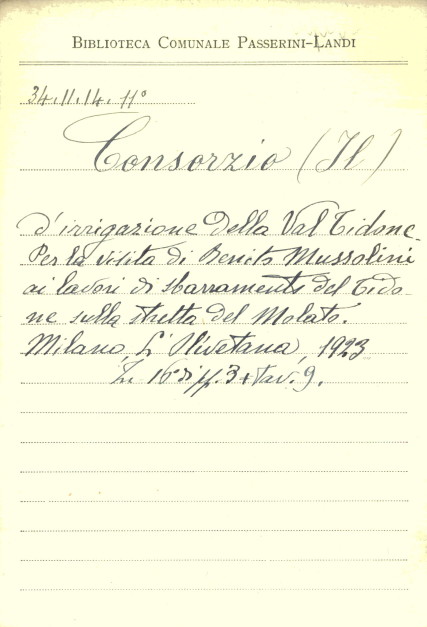 BIBLIOTECA COMUNALE PASSERINI-LANDI
34.11.14.11°
Consorzio (Il)
d'irrigazione della Val Tidone.
Per la visita di Benito Mussolini
ai lavori di sbarramento del Tido-
ne sulla stretta del Molato.
Milano, L'Olivetana, 1923
In 16° di pp. 3 + tav. 9.